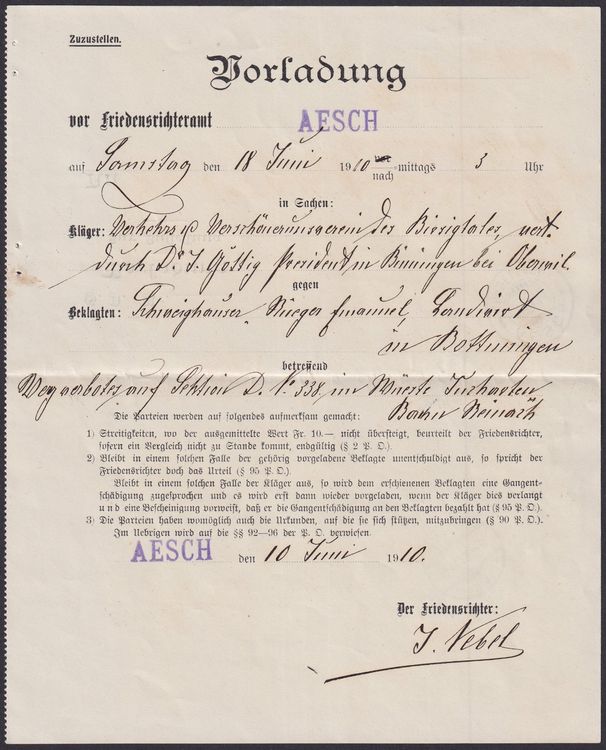 Zuzustellen.
Vorladung
vor Friedensrichteramt AESCH
auf Samstag den 18 Juni 1910 vor nach mittags 3 Uhr
in Sachen:
Kläger: Verkehrs u Verschönerungsverein des Birsigtales, vert.
durch Dr. J. Göttig President in Binningen bei Oberwil.
gegen
Beklagten: Schweighauser Rueger Emanuel, Landwirt
in Bottmingen
betreffend
Wegverbotes auf Sektion D. No 338, im
Bann Reinach
Die Parteien werden auf folgendes aufmerksam gemacht:
1) Streitigkeiten, wo der ausgemittelte Wert Fr. 10.— nicht übersteigt, beurteilt der Friedensrichter,
sofern ein Vergleich nicht zu Stande kommt, endgültig (§ 2 P. O.).
2) Bleibt in einem solchen Falle der gehörig vorgeladene Beklagte unentschuldigt aus, so spricht der
Friedensrichter doch das Urteil (§ 95 P. O.).
Bleibt in einem solchen Falle der Kläger aus, so wird dem erschienenen Beklagten eine Gangent-
schädigung zugesprochen und es wird erst dann wieder vorgeladen, wenn der Kläger dies verlangt
und eine Bescheinigung vorweist, daß er die Gangentschädigung an den Beklagten bezahlt hat (§ 95 P. O.).
3) Die Parteien haben womöglich auch die Urkunden, auf die sie sich stützen, mitzubringen (§ 90 P. O.).
Im Uebrigen wird auf die §§ 92—96 der P. O. verwiesen.
AESCH den 10 Juni 1910.
Der Friedensrichter:
J. Nebel